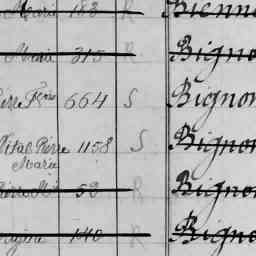 Marie 183 R Bienn
Marie 315 R Bigno
erre Fçois 664 S Bignon
Vital Pierre 1158 S Bignon
Marie
53 R Bignon
140 R Bigno